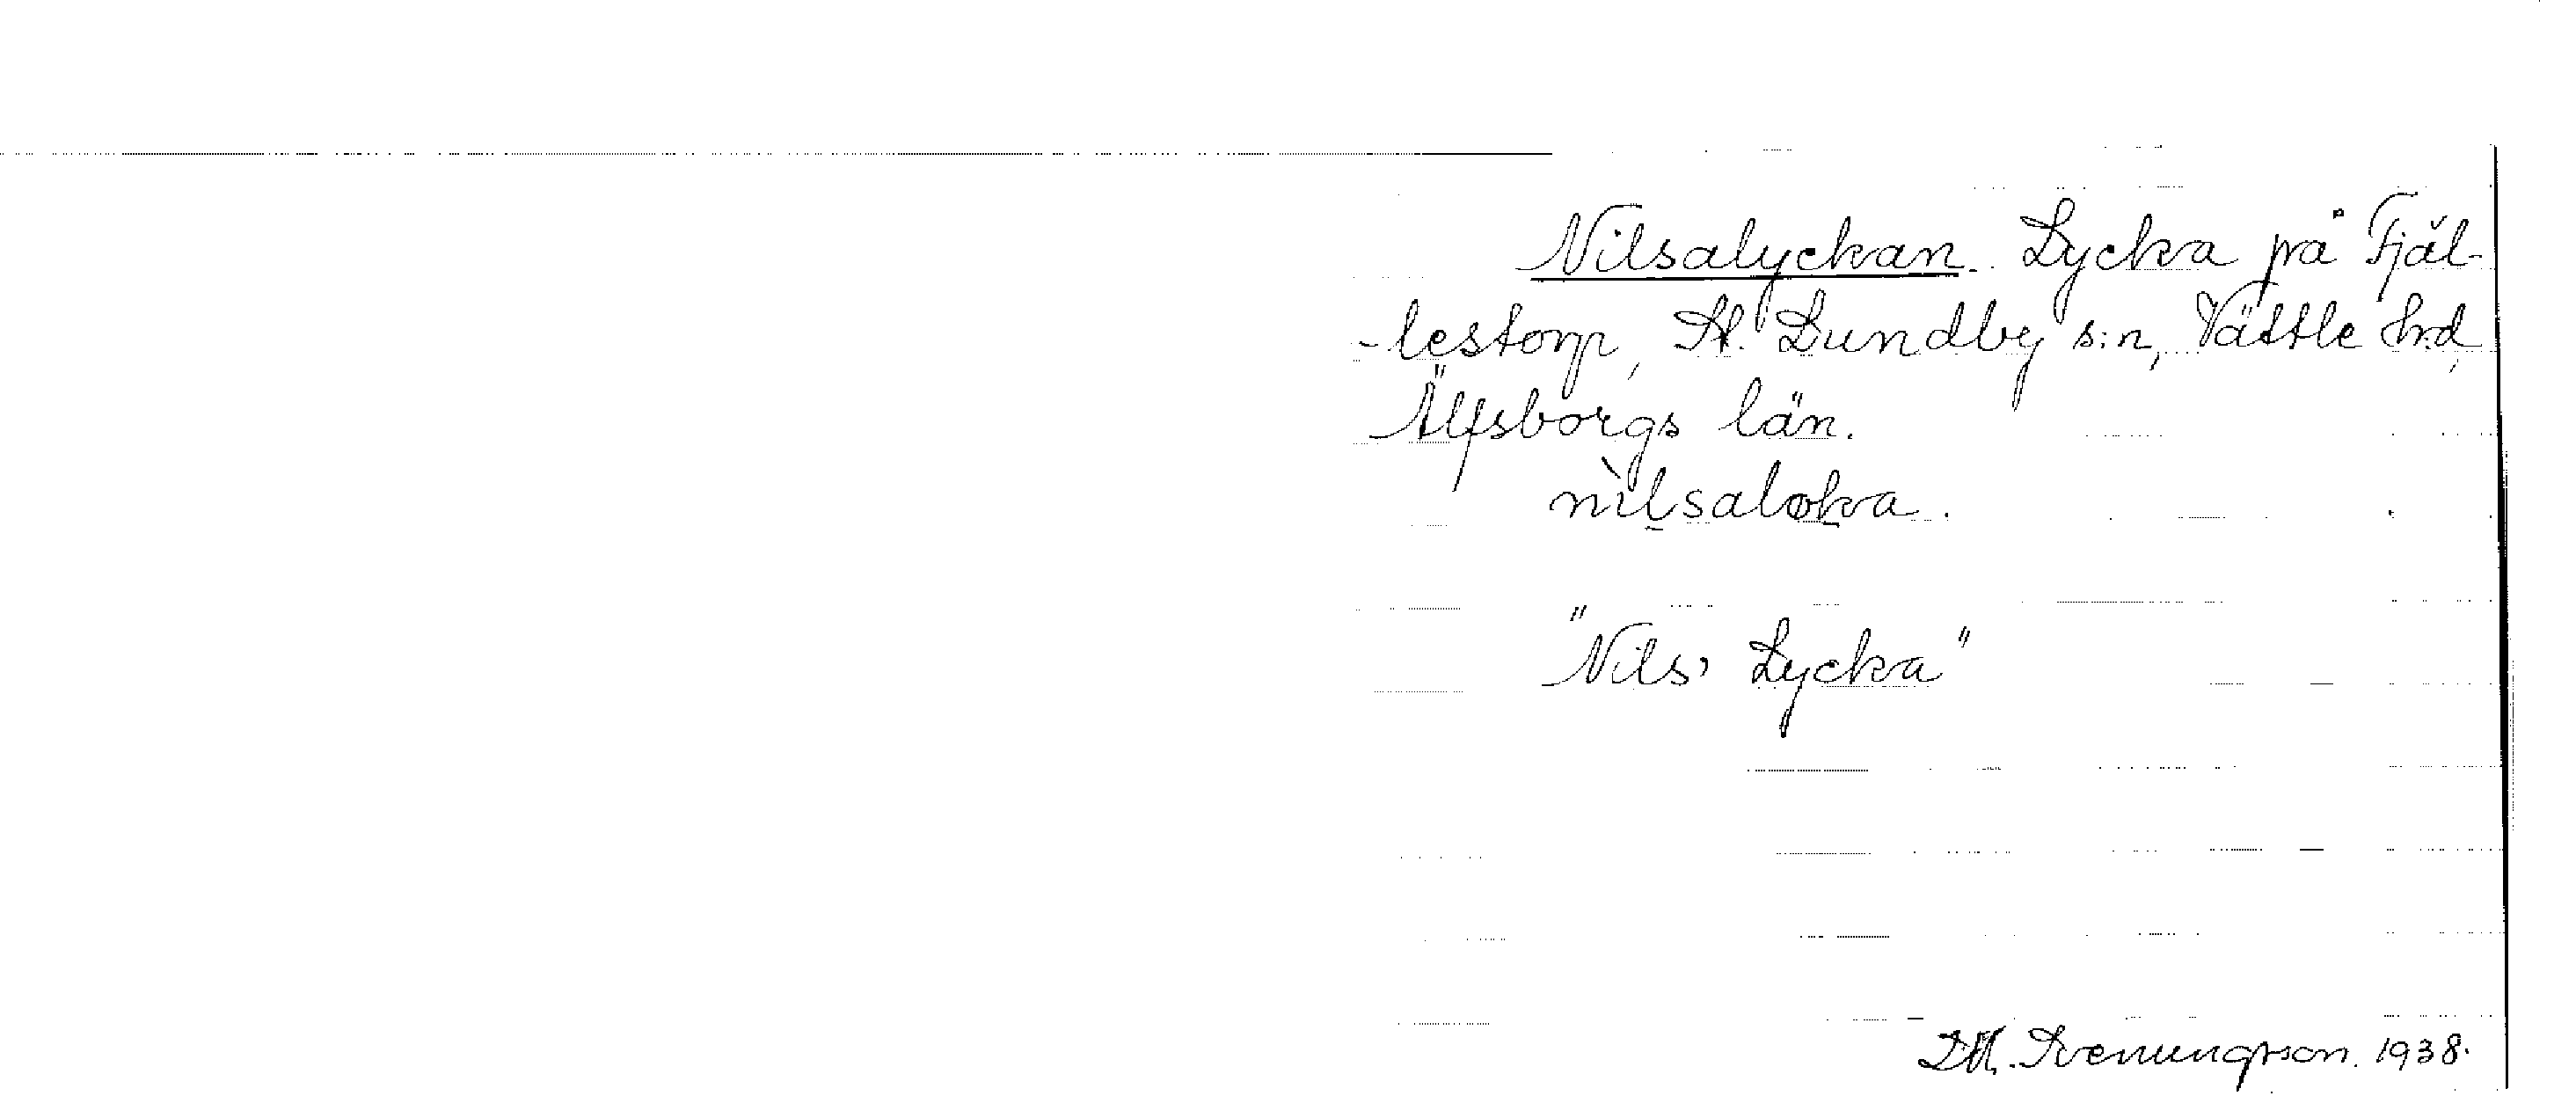 Nilsalyckan. Lycka på Fjäl-
-lestorp, St. Lundby s:n, Vättle hrd,
Älfsborgs län.
nìlsaløka.
"Nils' Lycka"
Svenungsson. 1938.